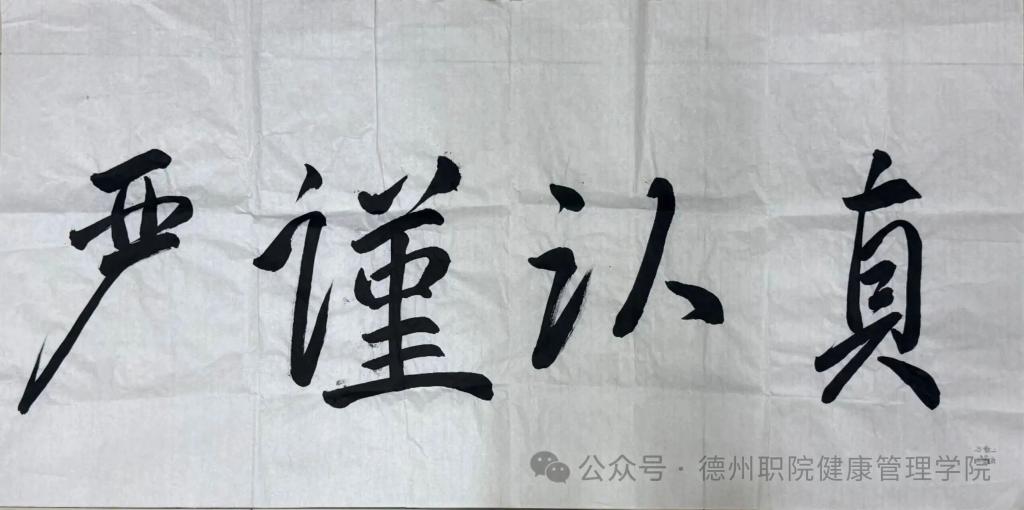 严谨认真
公众号·德州职院健康管理学院